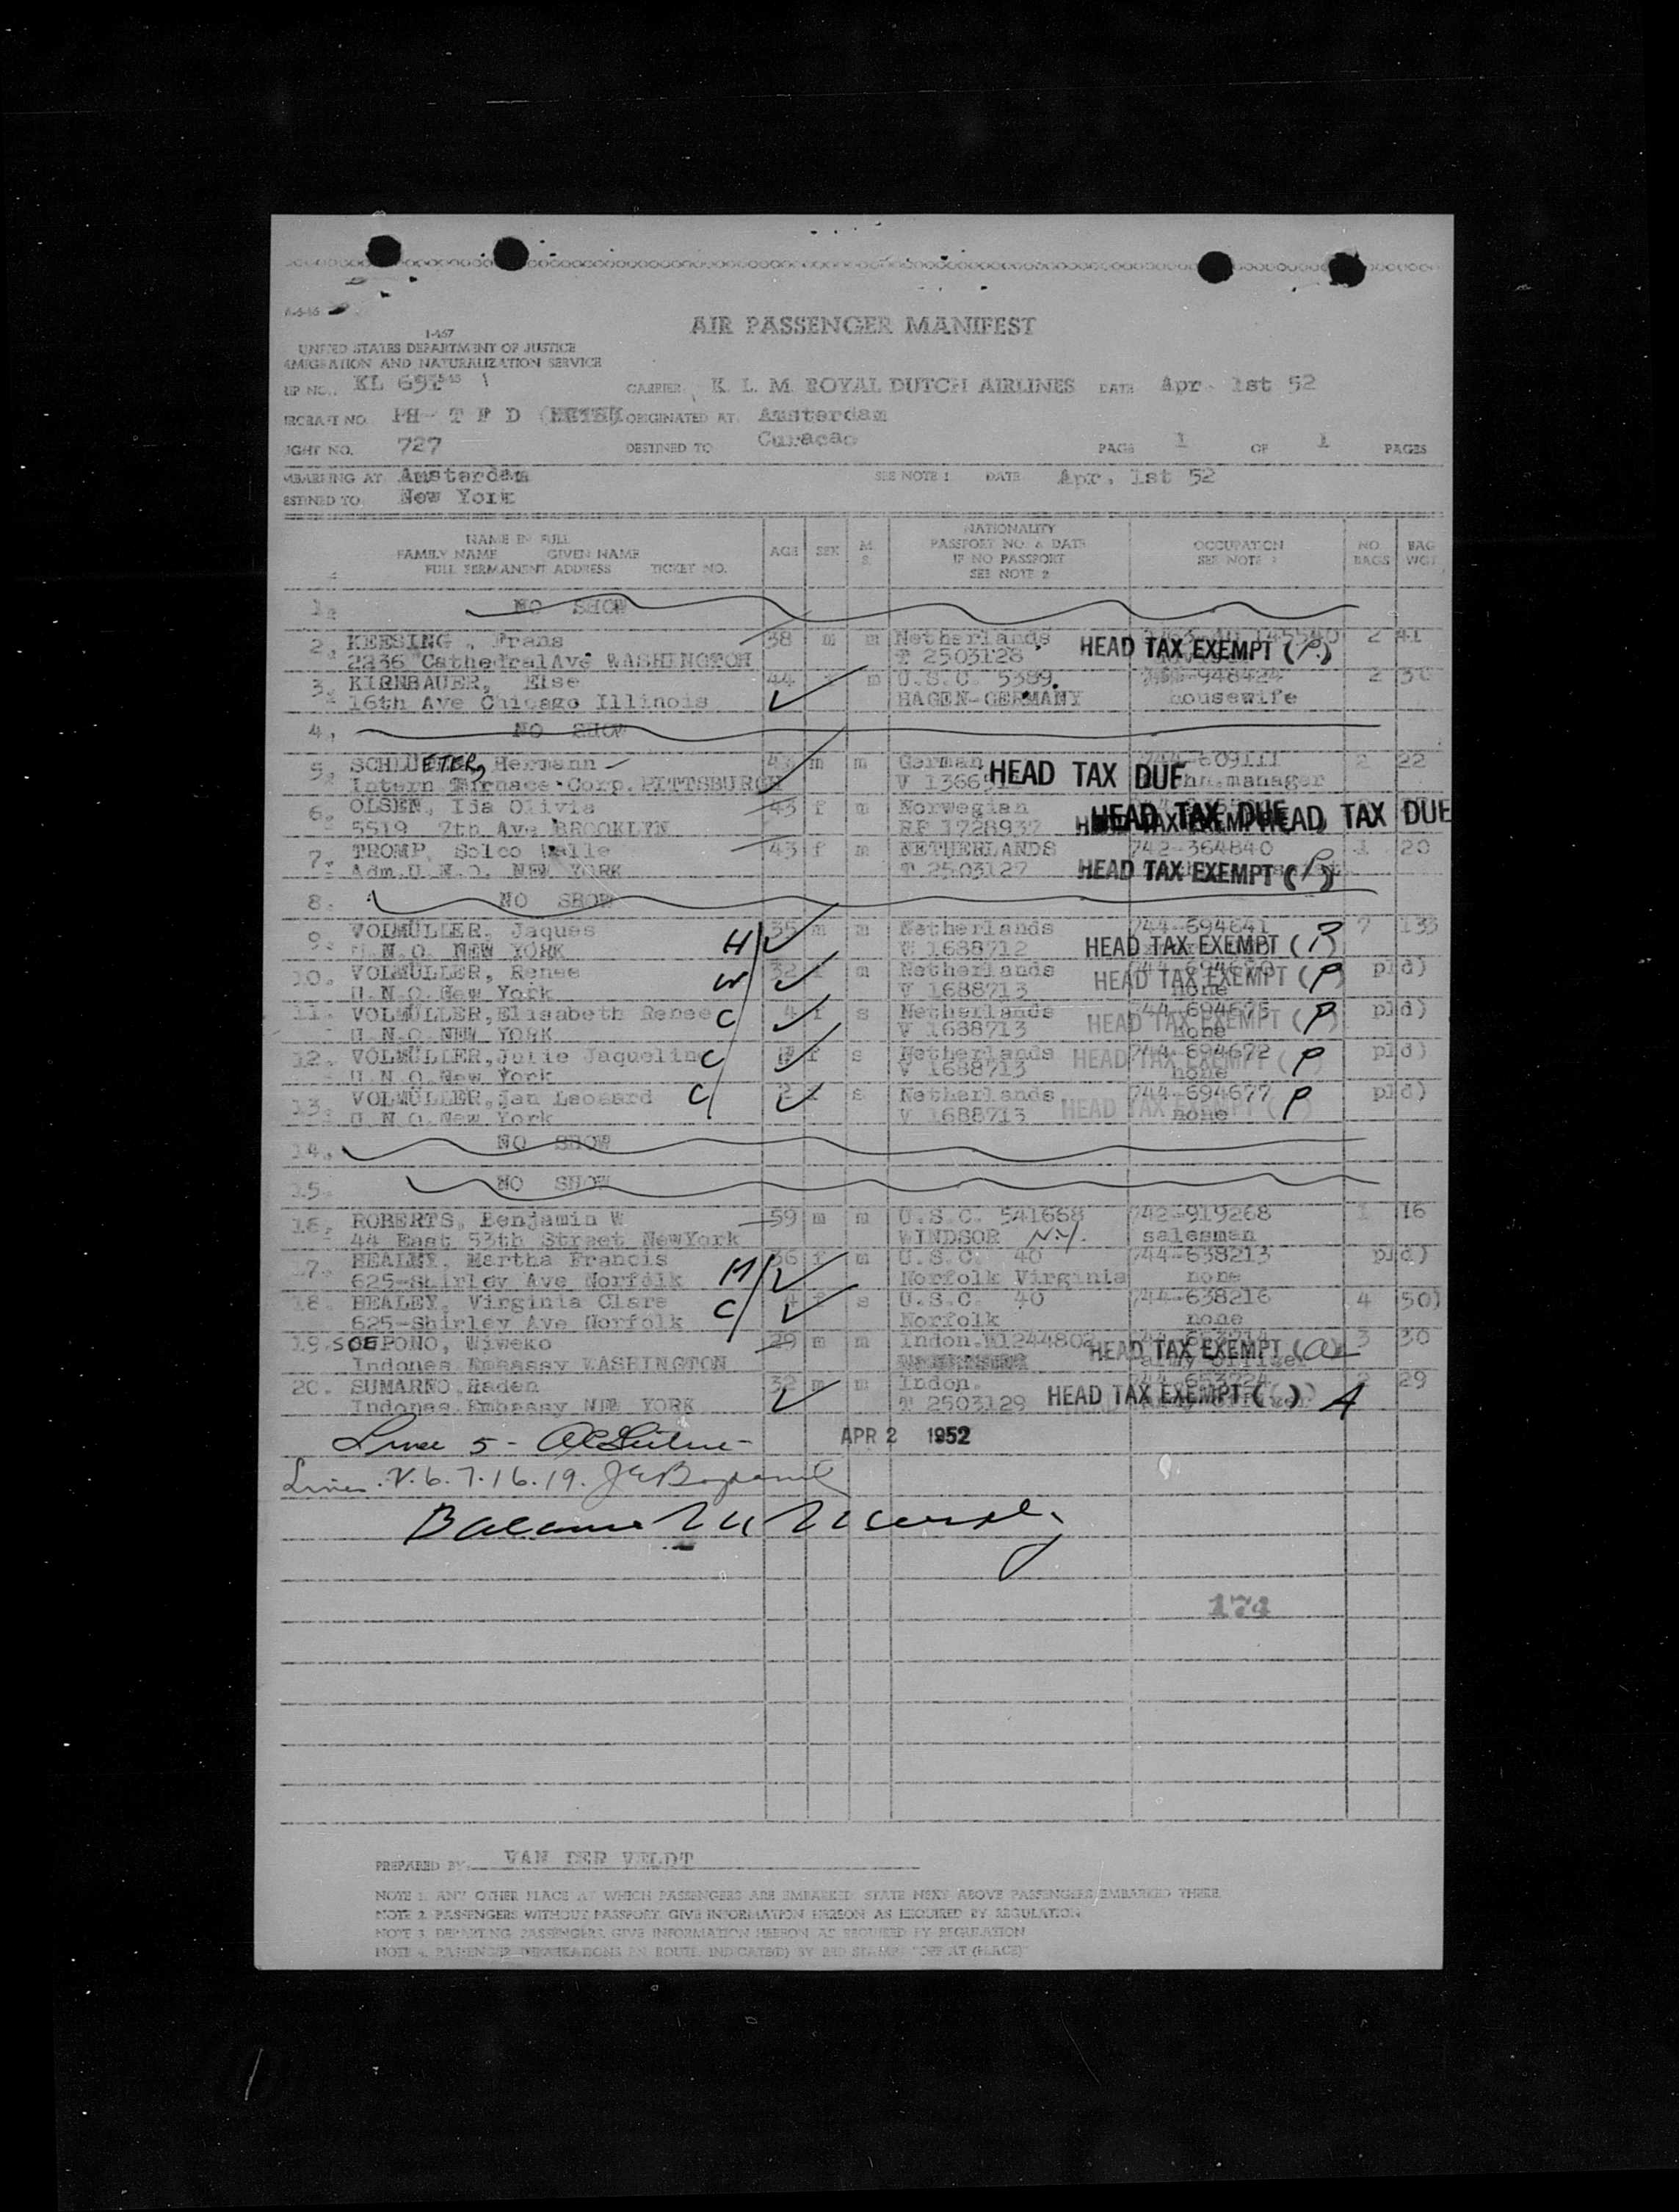 AIR PASSENGER MANIFEST
I-467
UNITED STATES DEPARTMENT OF JUSTICE
IMMIGRATION AND NATURALIZATION SERVICE
KL CARRIER K. L. M. ROYAL DUTCH AIRLINES DATE Apr. 1st 52
AIRCRAFT NO. PH- T F D ORIGINATED AT Amsterdam
IGHT NO. 727 DESTINED TO Curacao PAGE 1 OF 1 PAGES
MBARKING AT Amsterdam SEE NOTE 1 DATE Apr. 1st 52
ESTINED TO New York
NAME IN FULL
FAMILY NAME GIVEN NAME
FULL PERMANENT ADDRESS TICKET NO.
AGE SEX M S
NATIONALITY
PASSPORT NO. & DATE
IF NO PASSPORT
SEE NOTE 2
OCCUPATION
SEE NOTE 3
NO BAGS BAG WGT
1. NO SHOW
2. KEESING , Frans 38 m m Netherlands 2 41
2236 Cathedral Ave WASHINGTON T 2503128 HEAD TAX EXEMPT (P)
3. KIRNBAUER, Else 44 m U.S.C. 5389. 948424 2 30
16th Ave Chicago Illinois HAGEN-GERMANY housewife
4. NO SHOW
5. SCHLUETER, Hermann m m German 744-609111 2 22
Intern Furnace Corp. PITTSBURGH HEAD TAX DUE manager
6. OLSEN, Ida Olivia 43 f m Norwegian
5519 7th Ave BROOKLYN HEAD TAX DUE HEAD TAX DUE
7. TROMP, Solco Walle 43 f m NETHERLANDS 742-364840 1 20
Adm.U.N.O. NEW YORK T 2503127 HEAD TAX EXEMPT (P)
8. NO SHOW
9. VOLMÜLLER, Jaques H 35 m m Netherlands 744-694641 7 133
U.N.O. NEW YORK V 1688712 HEAD TAX EXEMPT (P)
10. VOLMÜLLER, Renee W 32 f m Netherlands pld)
U.N.O. New York V 1688713 HEAD TAX EXEMPT (P) none
11. VOLMÜLLER, Elisabeth Renee C 4 f s Netherlands 744-694675 pld)
U.N.O. NEW YORK V 1688713 HEAD TAX EXEMPT (P) none
12. VOLMÜLLER, Julie Jaqueline C f s Netherlands 744-694672 pld)
U.N.O. New York V 1688713 HEAD TAX EXEMPT (P) none
13. VOLMÜLLER, Jan Leonard C s Netherlands 744-694677 pld)
U.N.O. New York V 1688713 HEAD TAX EXEMPT (P) none
14. NO SHOW
15. NO SHOW
16. ROBERTS, Benjamin W 59 m m U.S.C. 541668 742-919268 1 16
44 East 53th Street NewYork WINDSOR N.Y. salesman
17. HEALEY, Martha Francis M 36 f m U.S.C. 40 744-638213 pld)
625-Shirley Ave Norfolk Norfolk Virginia none
18. HEALEY, Virginia Clare C 4 f s U.S.C. 40 744-638216 4 50)
625-Shirley Ave Norfolk Norfolk none
19. SOEPONO, Wiweko 29 m m Indon. 1244802 3 30
Indones Embassy WASHINGTON HEAD TAX EXEMPT (A) army officer
20. SUMARNO, Raden 32 m m Indon. 744-653724 2 29
Indones. Embassy NEW YORK T 2503129 HEAD TAX EXEMPT ( ) A
Line 5 - APR 2 1952
Lines 2. 6. 7. 16. 19.
Balance
174
PREPARED BY: VAN DER VELDT
NOTE 1. ANY OTHER PLACE AT WHICH PASSENGERS ARE EMBARKED STATE NEXT ABOVE PASSENGERS EMBARKED THERE.
NOTE 2. PASSENGERS WITHOUT PASSPORT GIVE INFORMATION HEREON AS REQUIRED BY REGULATION
NOTE 3. DEPARTING PASSENGERS GIVE INFORMATION HEREON AS REQUIRED BY REGULATION
NOTE 4. PASSENGER DEPARTATIONS EN ROUTE INDICATED BY RED STAMP "OFF AT (PLACE)"